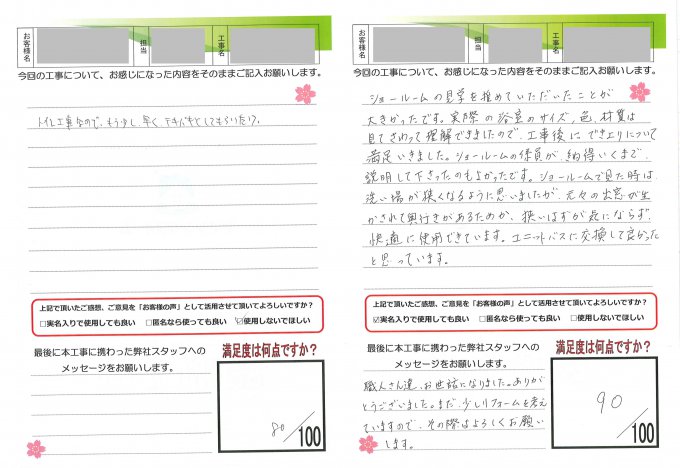 お客様名
担当
工事名
今回の工事について、お感じになった内容をそのままご記入お願いします。
トイレ工事なので、もう少し、早く テキパキとしてもらいたい。
上記で頂いたご感想、ご意見を「お客様の声」として活用させて頂いてよろしいですか？
□実名入りで使用しても良い □匿名なら使っても良い ☑使用しないでほしい
最後に本工事に携わった弊社スタッフへの
メッセージをお願いします。
満足度は何点ですか？
80/100
お客様名
担当
工事名
今回の工事について、お感じになった内容をそのままご記入お願いします。
ショールームの見学を進めていただいたことが
大きかったです。実際の浴室のサイズ、色、材質は
見てさわって理解できましたので、工事後にでき上りについて
満足いきました。ショールームの係員が、納得いくまで、
説明して下さったのもよかったです。ショールームで見た時は、
洗い場が狭くなるように思いましたが、元々の出窓が生
かされて奥行きがあるためか、狭いはずが気にならず、
快適に使用できています。ユニットバスに交換して良かった
と思っています。
上記で頂いたご感想、ご意見を「お客様の声」として活用させて頂いてよろしいですか？
☑実名入りで使用しても良い □匿名なら使っても良い □使用しないでほしい
最後に本工事に携わった弊社スタッフへの
メッセージをお願いします。
職人さん達、お世話になりました。ありが
とうございました。まだ、少しリフォームを考え
ていますので、その際はよろしくお願い
します。
満足度は何点ですか？
90/100